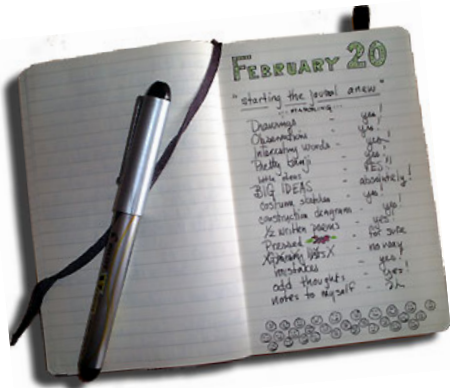 FEBRUARY 20
"starting the journal anew"
Drawings - yes!
Observations - yes!
Interesting words - yes!
Pretty kanji - YES!!
BIG IDEAS - absolutely!
costume sketches - yes!
construction diagrams - yes
1/2 written poems - yes!!
Pressed - for sure
lists - no way
mistakes - yes!
odd thoughts - yes!
notes to myself -